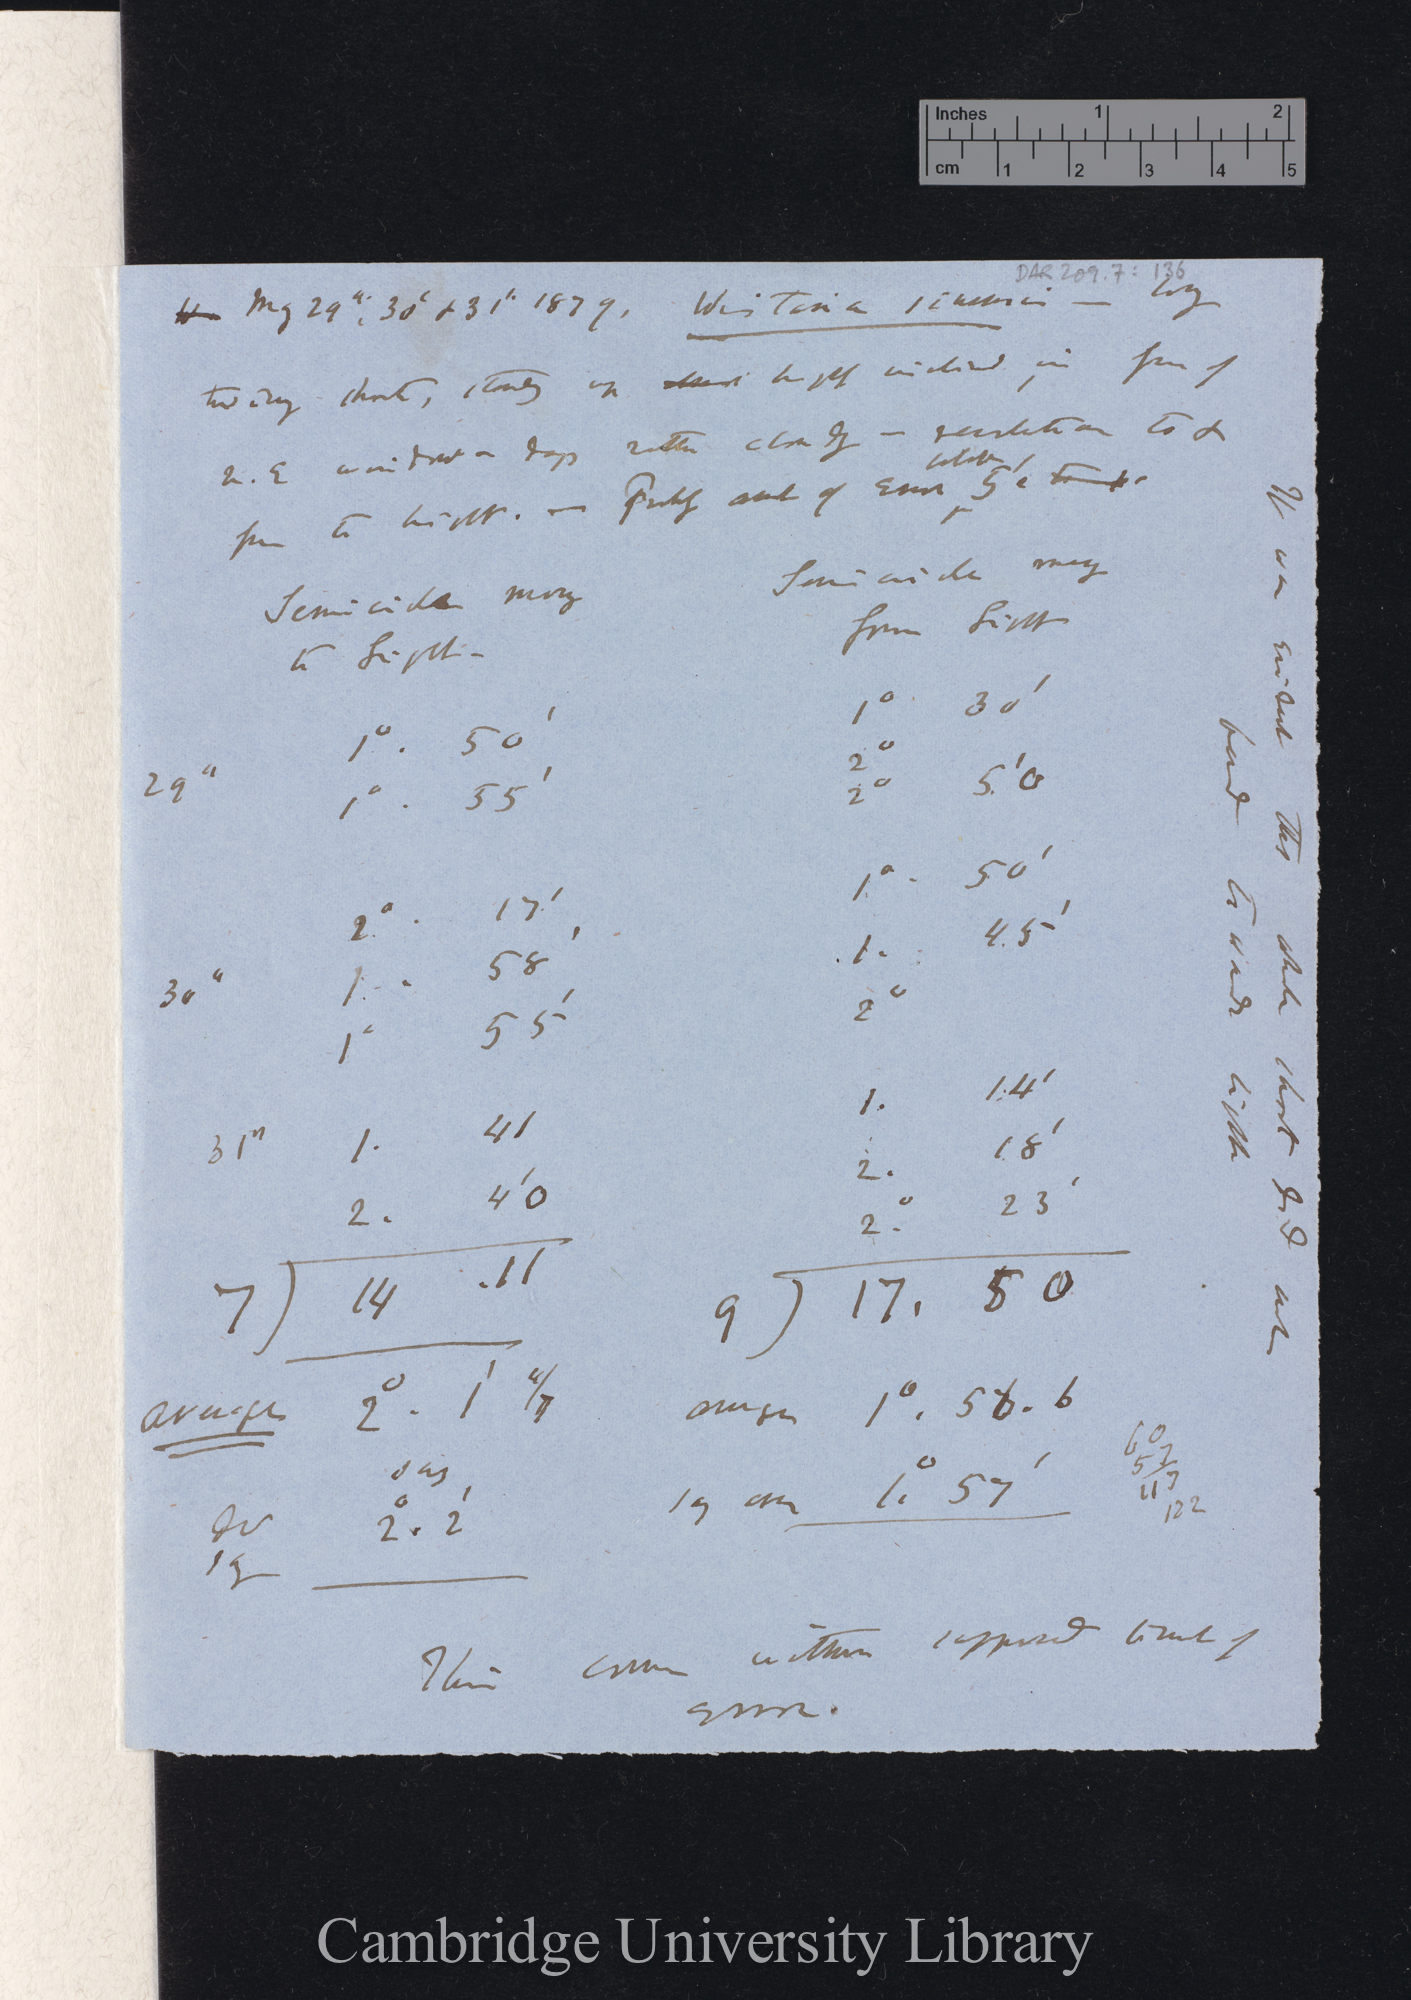 Inches 1 2
cm 1 2 3 4 5
DAR 209.7: 136
May 29th, 30th & 31st 1879. Wistaria sinensis — long
twining shoot, standing up light in front of
N.E window days rather cloudy — revolution to &
from to light. — Probably amount of Error within 5'
Semicircle moving
to light —
Semicircle moving
from light
29th
1°. 50'
1°. 55'
30th
2°. 17'
1. 58'
1° 55'
31st
1. 41
2. 40'
7) 14 .11
average 2°. 1' 4/7
say
2°. 2'
1° 30'
2°
2° 5'0
1°. 50'
1. 45'
2°
1. 14'
2. 18'
2.° 23'
9) 17. 50
average 1°. 56. 6
1° 57'
60
57
117
122
This comes within supposed limit of
error.
It was evident that whole shoot did not
bend towards light
Cambridge University Library